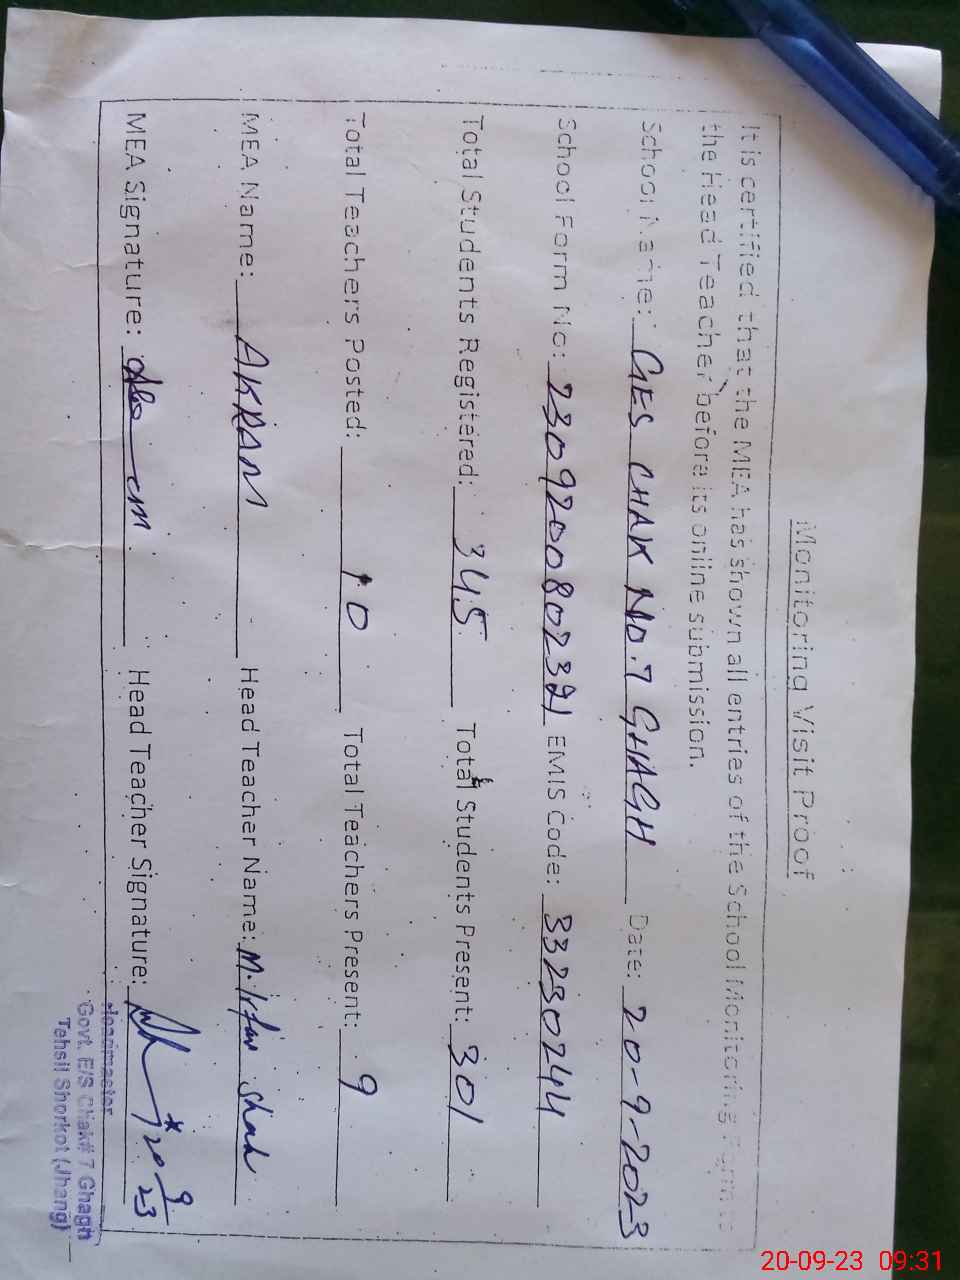 Monitoring Visit Proof
It is certified that the MEA has shown all entries of the School Monitoring Form to
the Head Teacher before its online submission.
School Name: GES CHAK NO.7 GHAGH Date: 20-9-2023
School Form No: 2309200802321 EMIS Code: 33230244
Total Students Registered: 345 Total Students Present: 301
Total Teachers Posted: 10 Total Teachers Present: 9
MEA Name: AKRAM Head Teacher Name: M. Irfan Shah
MEA Signature: Head Teacher Signature: 20/9/23
Headmaster
Govt. E/S Chak# 7 Ghagh
Tehsil Shorkot (Jhang)
20-09-23 09:31